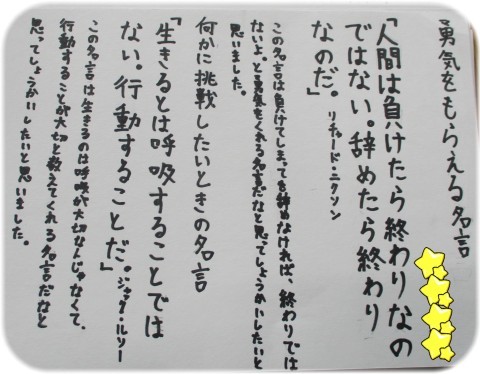 勇気をもらえる名言
「人間は負けたら終わりなの
ではない。辞めたら終わり
なのだ。」 リチャード・ニクソン
この名言は負けてしまっても辞めなければ、終わりでは
ないよ。と勇気をくれる名言だなと思ってしょうかいしたいと
思いました。
何かに挑戦したいときの名言
「生きるとは呼吸することでは
ない。行動することだ。」 ジャック・ルソー
この名言は生きるのは呼吸が大切なんじゃなくて、
行動することが大切と教えてくれる名言だなと
思ってしょうかいしたいと思いました。